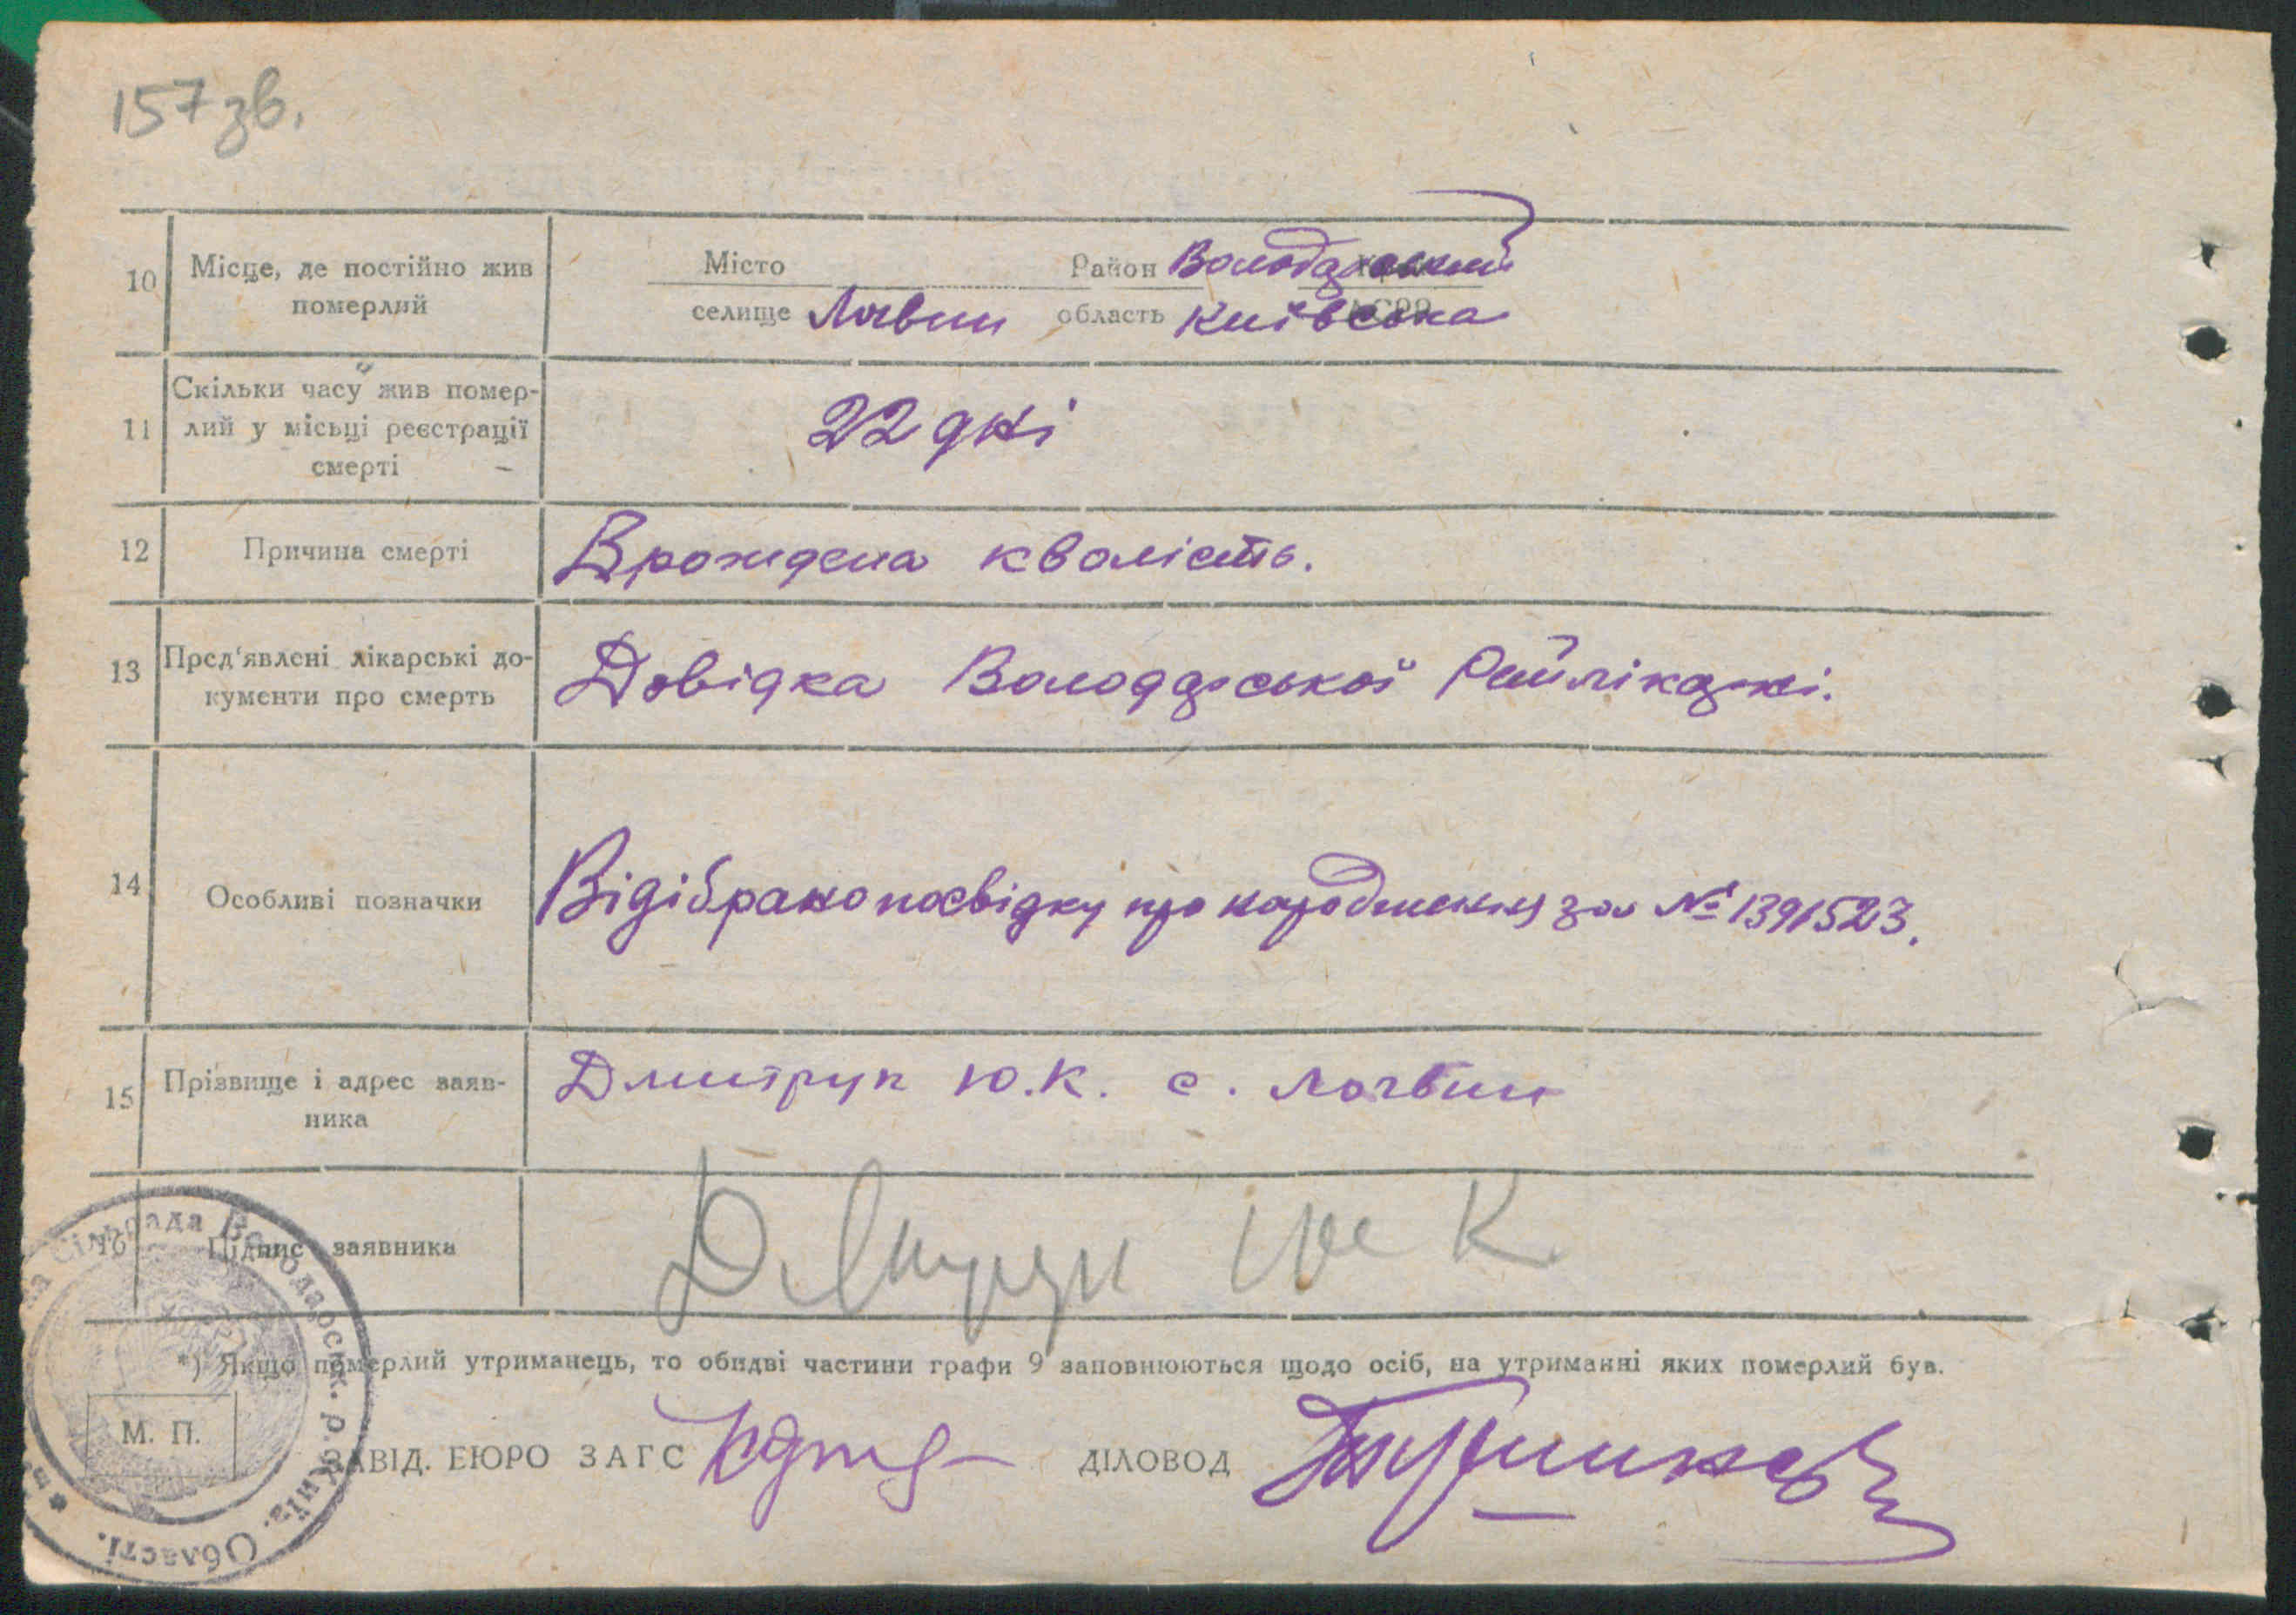 157 зв.
10 Місце, де постійно жив померлий
Місто Район Володарський
селище Логвин область Київська
11 Скільки часу жив помер-
лий у місьці реєстрації
смерті
22 дні
12 Причина смерті Врождена кволість.
13 Пред'явлені лікарські до-
кументи про смерть
Довідка Володарської Райлікарні.
14 Особливі позначки Відібрано посвідку про народження за № 1391523.
15 Прізвище і адрес заяв-
ника
Дмитрук Ю.К. с. Логвин
16 Підпис заявника
*) Якщо померлий утриманець, то обидві частини графи 9 заповнюються щодо осіб, на утриманні яких померлий був.
М. П.
ЗАВІД. БЮРО ЗАГС ДІЛОВОД
сільрада Володарськ. р. Київ. Області.